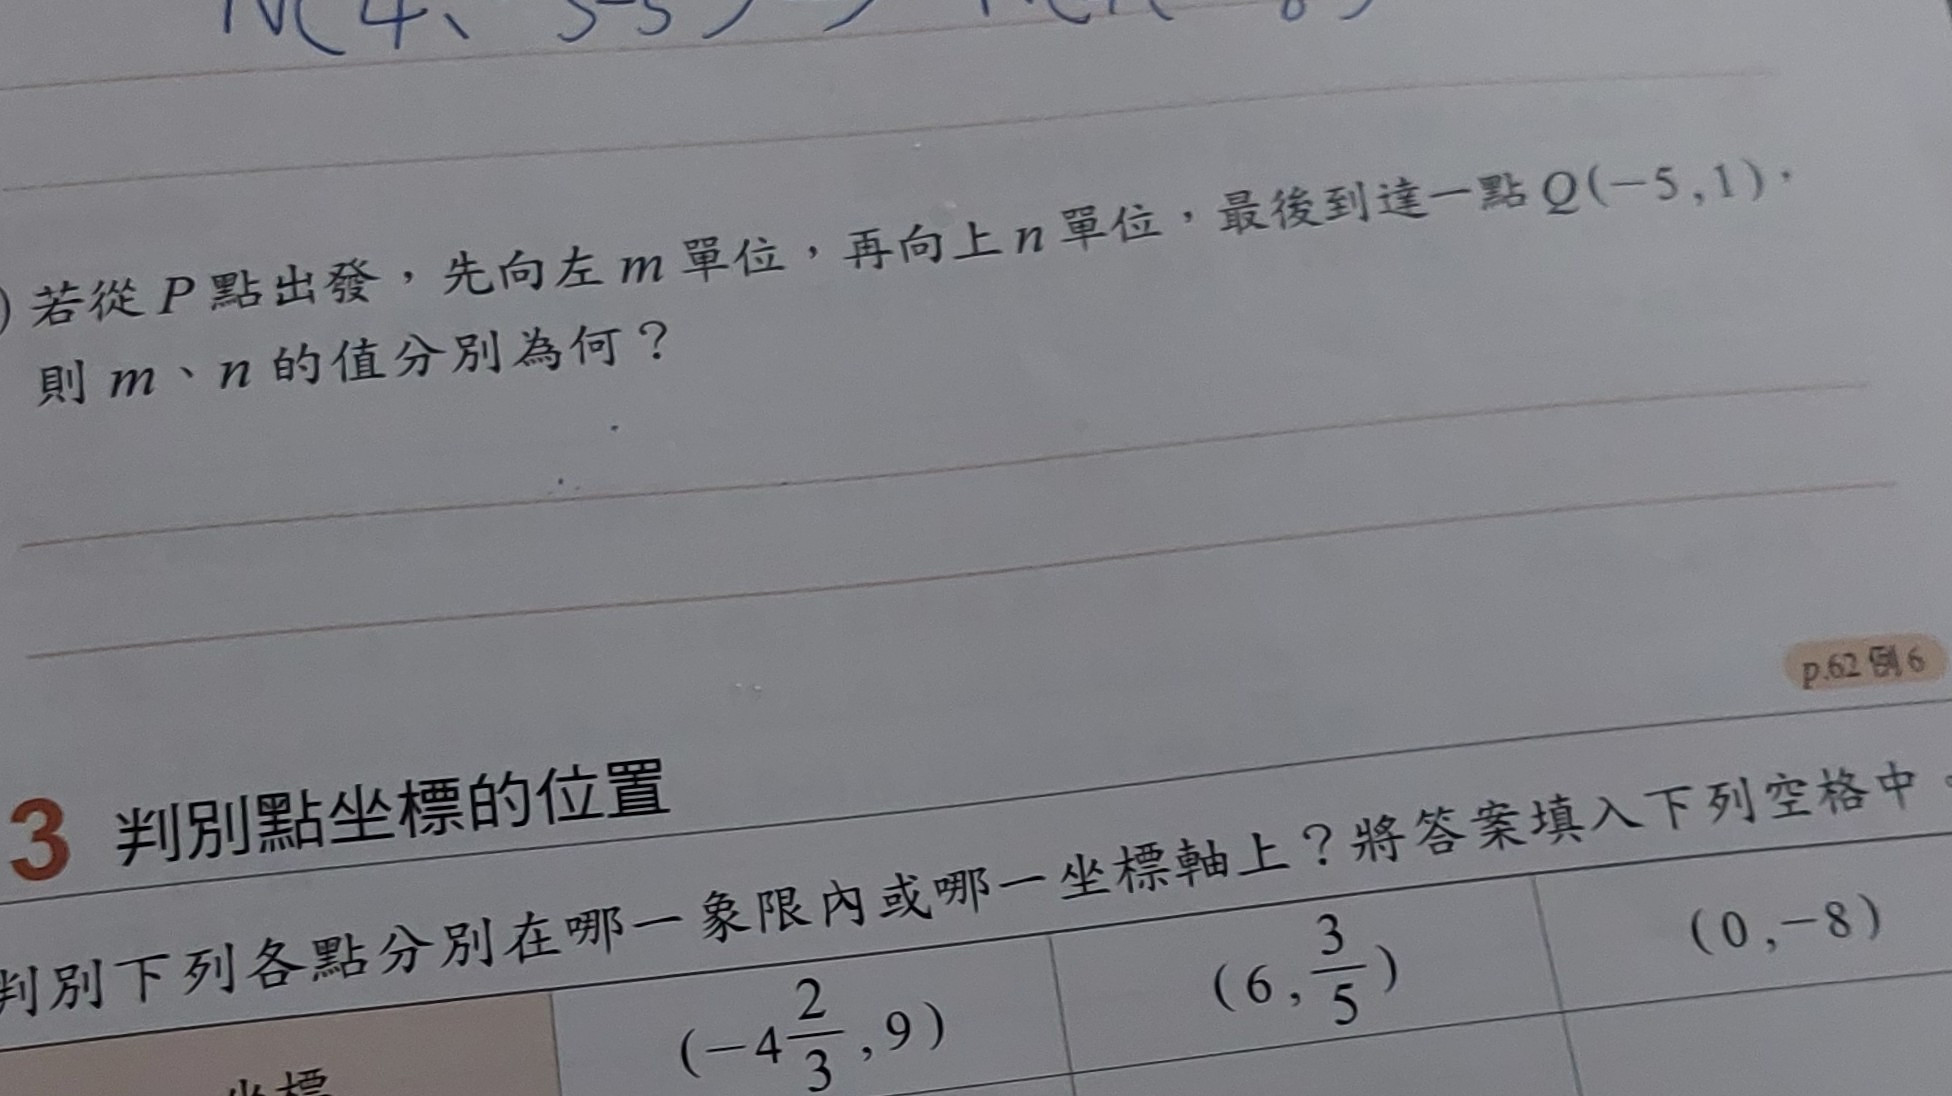 N(4、
) 若從 P 點出發，先向左 m 單位，再向上 n 單位，最後到達一點 Q(－5 , 1)，
則 m、n 的值分別為何？
p.62 例 6
3 判別點坐標的位置
判別下列各點分別在哪一象限內或哪一坐標軸上？將答案填入下列空格中。
坐標 (－4 2/3 , 9) (6 , 3/5) (0 , －8)